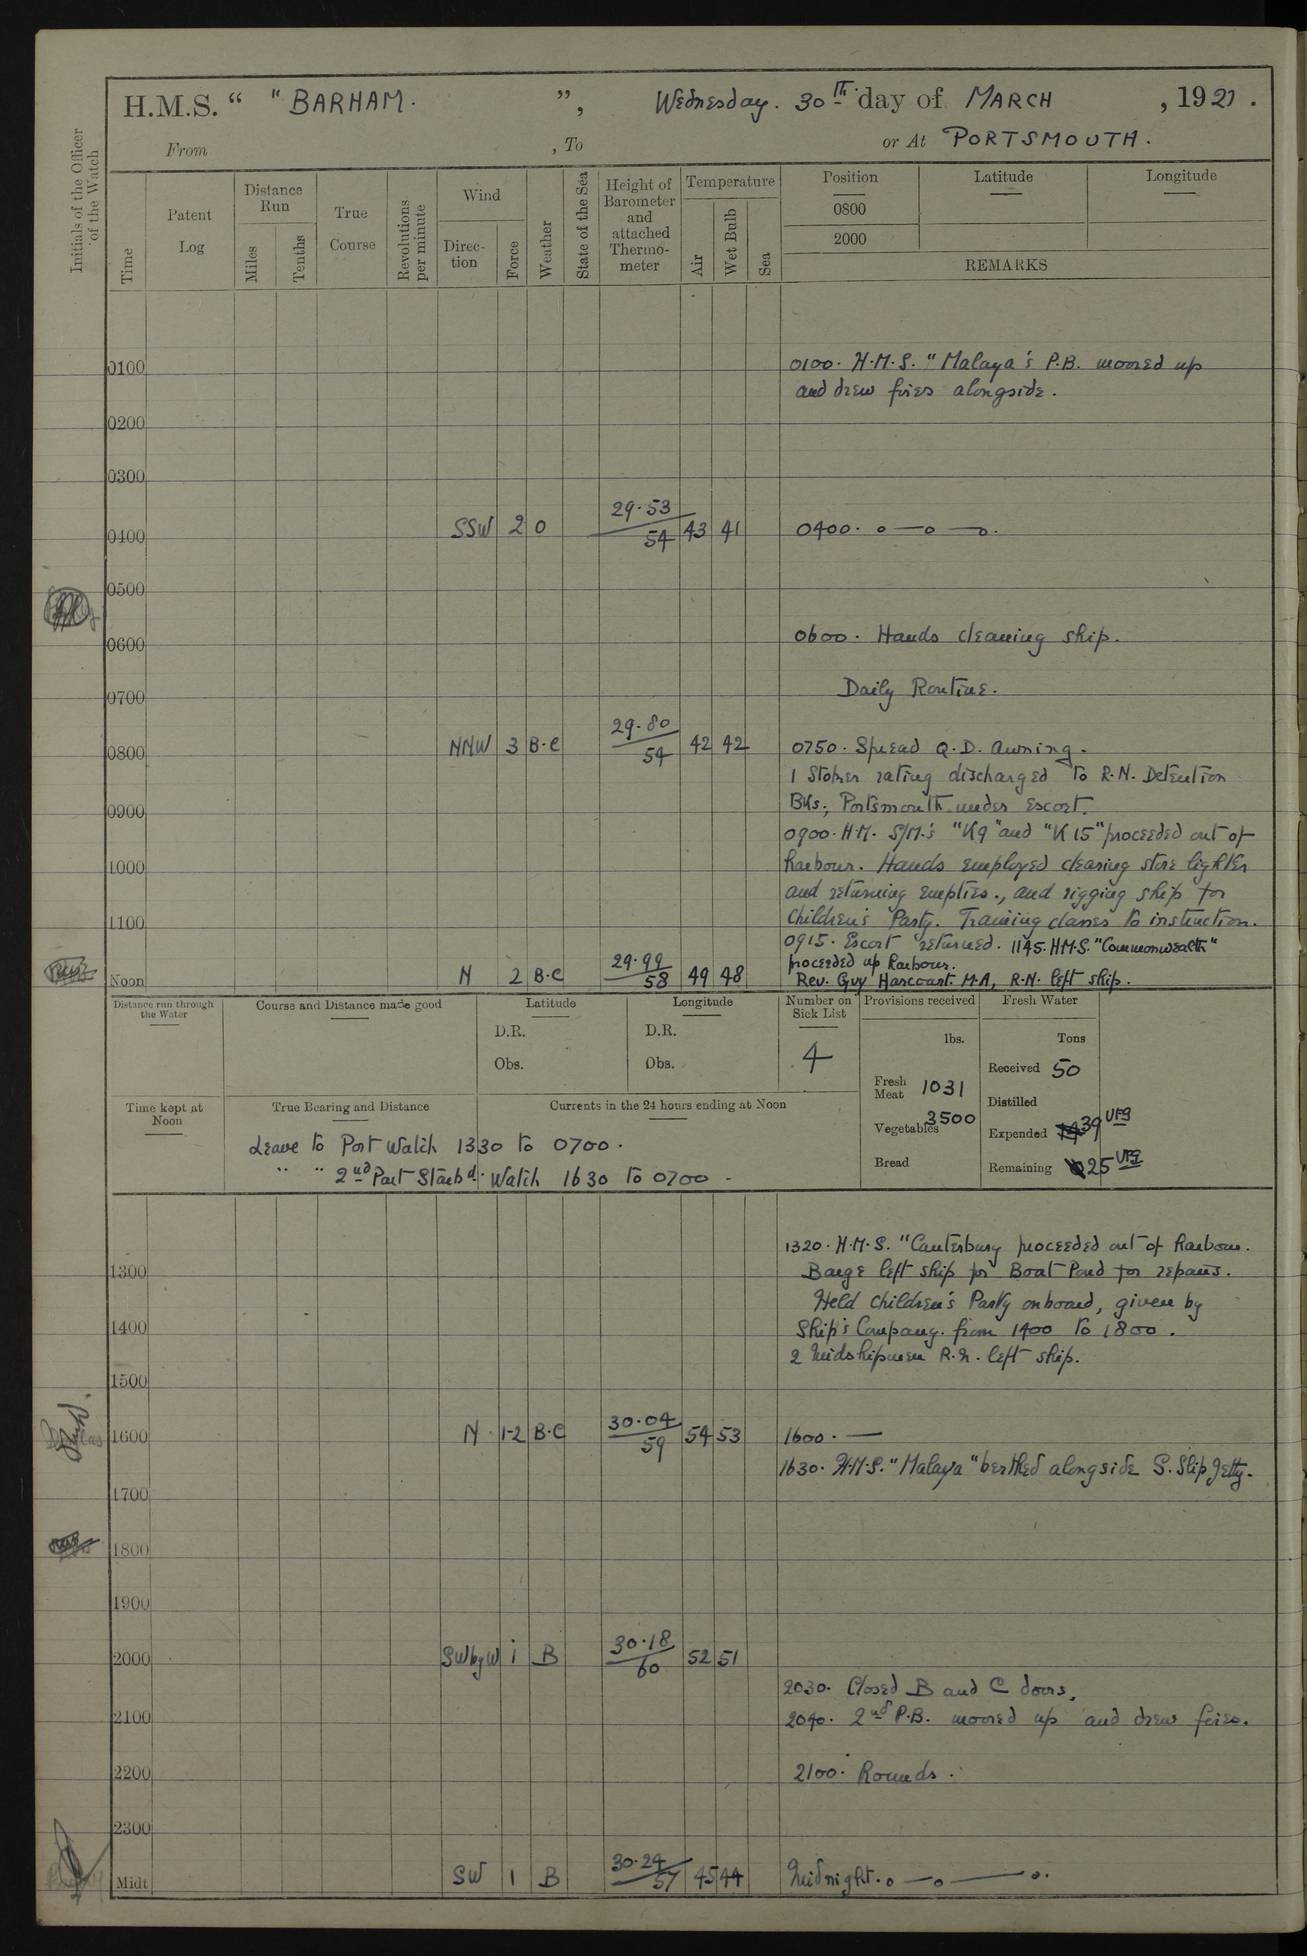 H.M.S. “ "BARHAM. ”, Wednesday. 30th day of MARCH , 1921 .
From , To or At PORTSMOUTH.
Initials of the Officer of the Watch
Time
Patent Log
Distance Run
Miles
Tenths
True Course
Revolutions per minute
Wind
Direc-tion
Force
Weather
State of the Sea
Height of Barometer and attached Thermo-meter
Temperature
Air
Wet Bulb
Sea
Position
0800
2000
Latitude
Longitude
REMARKS
0100 0100. H.M.S. "Malaya's P.B. moored up
and drew fires alongside.
0200
0300
0400 SSW 2 O 29.53 54 43 41 0400. o—o —o.
0500
0600 0600. Hands cleaning ship.
0700 Daily Routine.
0800 NNW 3 B.C 29.80 54 42 42 0750. Spread Q.D. awning.
1 Stoker rating discharged to R.N. Detention
0900 Bks., Portsmouth under escort.
0900. H.M. S/M.'s "K9" and "K15" proceeded out of
1000 harbour. Hands employed clearing store lighter
and returning empties., and rigging ship for
1100 Children's Party. Training classes to instruction.
0915. Escort returned. 1145. H.M.S. "Commonwealth"
proceeded up harbour.
Noon N 2 B.C 29.99 58 49 48 Rev. Guy Harcourt. M.A, R.N. left ship.
Distance run through the Water
Course and Distance made good
Latitude
D.R.
Obs.
Longitude
D.R.
Obs.
Number on Sick List
4
Provisions received
lbs.
Fresh Meat 1031
Vegetables 3500
Bread
Fresh Water
Tons
Received 50
Distilled
Expended 39
Remaining 25
Time kept at Noon
True Bearing and Distance
Currents in the 24 hours ending at Noon
Leave to Port Watch 1330 to 0700.
" " 2nd Part Starbd. Watch 1630 to 0700 -
1320. H.M.S. "Canterbury proceeded out of harbour.
1300 Barge left ship for Boat Pond for repairs.
Held Children's Party onboard, given by
1400 Ship's Company. from 1400 to 1800.
2 Midshipmen R.N. left ship.
1500
1600 N 1-2 B.C 30.04 59 54 53 1600. —
1630. H.M.S. "Malaya" berthed alongside S. Slip Jetty.
1700
1800
1900
2000 SWbyW 1 B 30.18 60 52 51
2030. Closed B and C doors,
2100 2040. 2nd P.B. moored up and drew fires.
2200 2100. Rounds.
2300
Midt SW 1 B 30.24 57 45 44 Midnight. o—o——o.